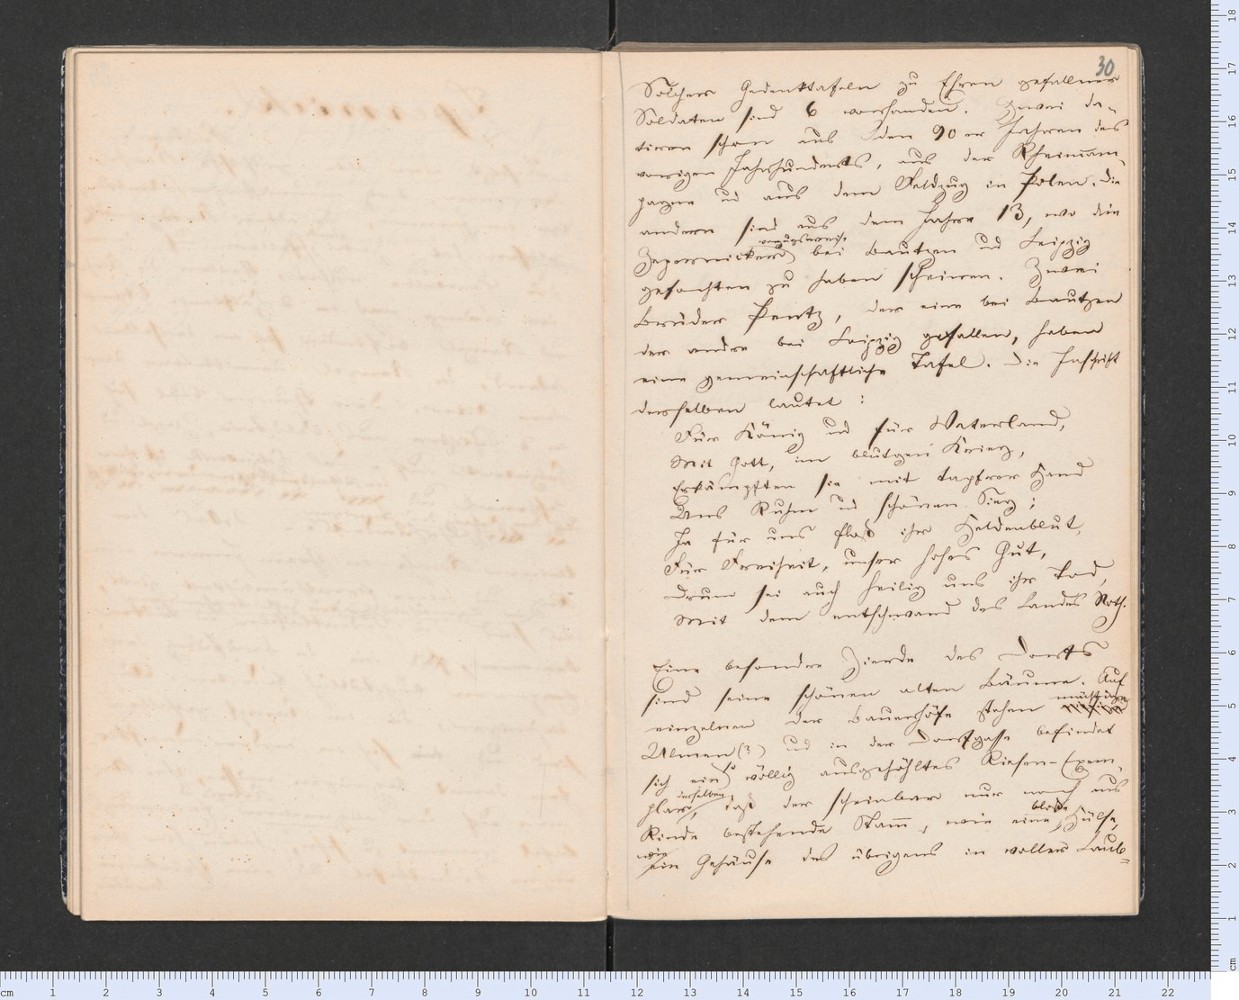 30
Solcher Gedenktafeln zu Ehren gefallner
Soldaten sind 6 vorhanden. Zwei da-
tiren schon aus den 90er Jahren des
vorigen Jahrhunderts, aus der Rheincam-
pagne ud aus dem Feldzug in Polen. Die
andern sind aus dem Jahre 13, wo die
vorzugsweise
bei Bautzen ud Leipzig
gefochten zu haben scheinen. Zwei
Brüder Pentz, der eine bei Bautzen
der andre bei Leipzig gefallen, haben
eine gemeinschaftliche Tafel. Die Inschrift
derselben lautet:
Für König ud für Vaterland,
Mit Gott, im blutgen Krieg,
Erkämpften sie mit tapfrer Hand
Uns Ruhm ud schönen Sieg;
Ja für uns floß ihr Heldenblut,
Für Freiheit, unser hohes Gut,
Drum sei auch heilig uns ihr Tod,
Mit dem entschwand des Landes Noth.
Eine besondre Zierde des Dorfs
sind seine schönen alten Bäume. Auf
einzelnen der Bauerhöfe stehen mächtige
Ulmen (3) ud in der Dorfgasse befindet
sich ein so völlig ausgehöhltes Riesen-Exem-
plar derselben, daß der scheinbar nur noch aus
Rinde bestehende Stamm, wie eine bloße Hülse,
wie ein Gehäuse des übrigens in voller Laub-